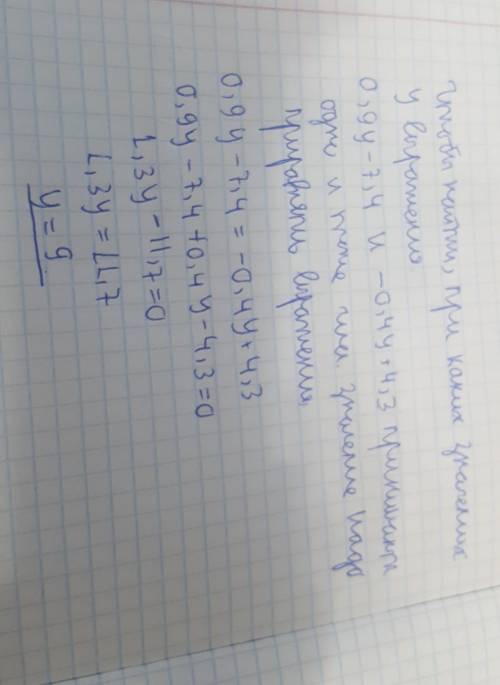 Чтобы найти, при каких значениях
у выражения
0,9y-7,4 и -0,4y+4,3 принимают
одно и тоже значение надо
приравнять выражения,
0,9y-7,4=-0,4y+4,3
0,9y-7,4+0,4y-4,3=0
1,3y-11,7=0
1,3y=11,7
y=9